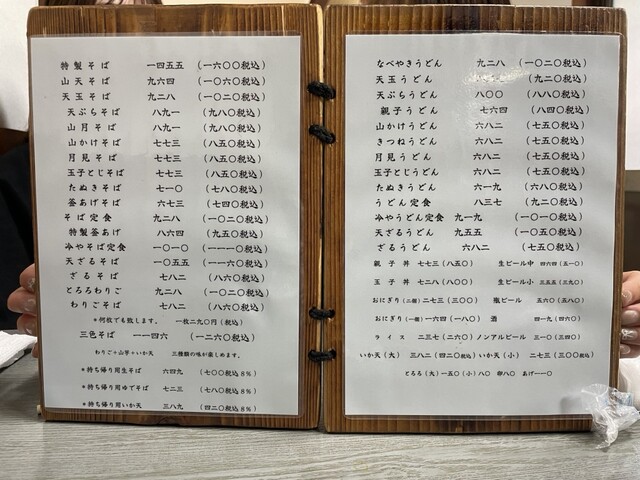 特製そば 一四五五 (一六〇〇税込)
山天そば 九六四 (一〇六〇税込)
天玉そば 九二八 (一〇二〇税込)
天ぷらそば 八九一 (九八〇税込)
山月そば 八九一 (九八〇税込)
山かけそば 七七三 (八五〇税込)
月見そば 七七三 (八五〇税込)
玉子とじそば 七七三 (八五〇税込)
たぬきそば 七一〇 (七八〇税込)
釜あげそば 六七三 (七四〇税込)
そば定食 九二八 (一〇二〇税込)
特製釜あげ 八六四 (九五〇税込)
冷やそば定食 一〇一〇 (一一一〇税込)
天ざるそば 一〇五五 (一一六〇税込)
ざるそば 七八二 (八六〇税込)
とろろわりご 九二八 (一〇二〇税込)
わりごそば 七八二 (八六〇税込)
*何枚でも致します。 一枚二九〇円(税込)
三色そば 一一四六 (一二六〇税込)
わりご+山芋+いか天 三種類の味が楽しめます。
*持ち帰り用生そば 六四九 (七〇〇税込8%)
*持ち帰り用ゆでそば 七二三 (七八〇税込8%)
*持ち帰り用いか天 三八九 (四二〇税込8%)
なべやきうどん 九二八 (一〇二〇税込)
天玉うどん (九二〇税込)
天ぷらうどん 八〇〇 (八八〇税込)
親子うどん 七六四 (八四〇税込)
山かけうどん 六八二 (七五〇税込)
きつねうどん 六八二 (七五〇税込)
月見うどん 六八二 (七五〇税込)
玉子とじうどん 六八二 (七五〇税込)
たぬきうどん 六一九 (六八〇税込)
うどん定食 八三七 (九二〇税込)
冷やうどん定食 九一九 (一〇一〇税込)
天ざるうどん 九五五 (一〇五〇税込)
ざるうどん 六八二 (七五〇税込)
親子丼 七七三(八五〇) 生ビール中 四六四(五一〇)
玉子丼 七二八(八〇〇) 生ビール小 三五五(三九〇)
おにぎり(二個)二七三(三〇〇) 瓶ビール 五六〇(五八〇)
おにぎり(一個)一六四(一八〇) 酒 四一九(四六〇)
ライス 二三七(二六〇) ノンアルビール 三一〇(三四〇)
いか天(大) 三八二(四二〇税込) いか天(小) 二七三(三〇〇税込)
とろろ(大)一五〇(小)八〇 卵八〇 あげ一一〇